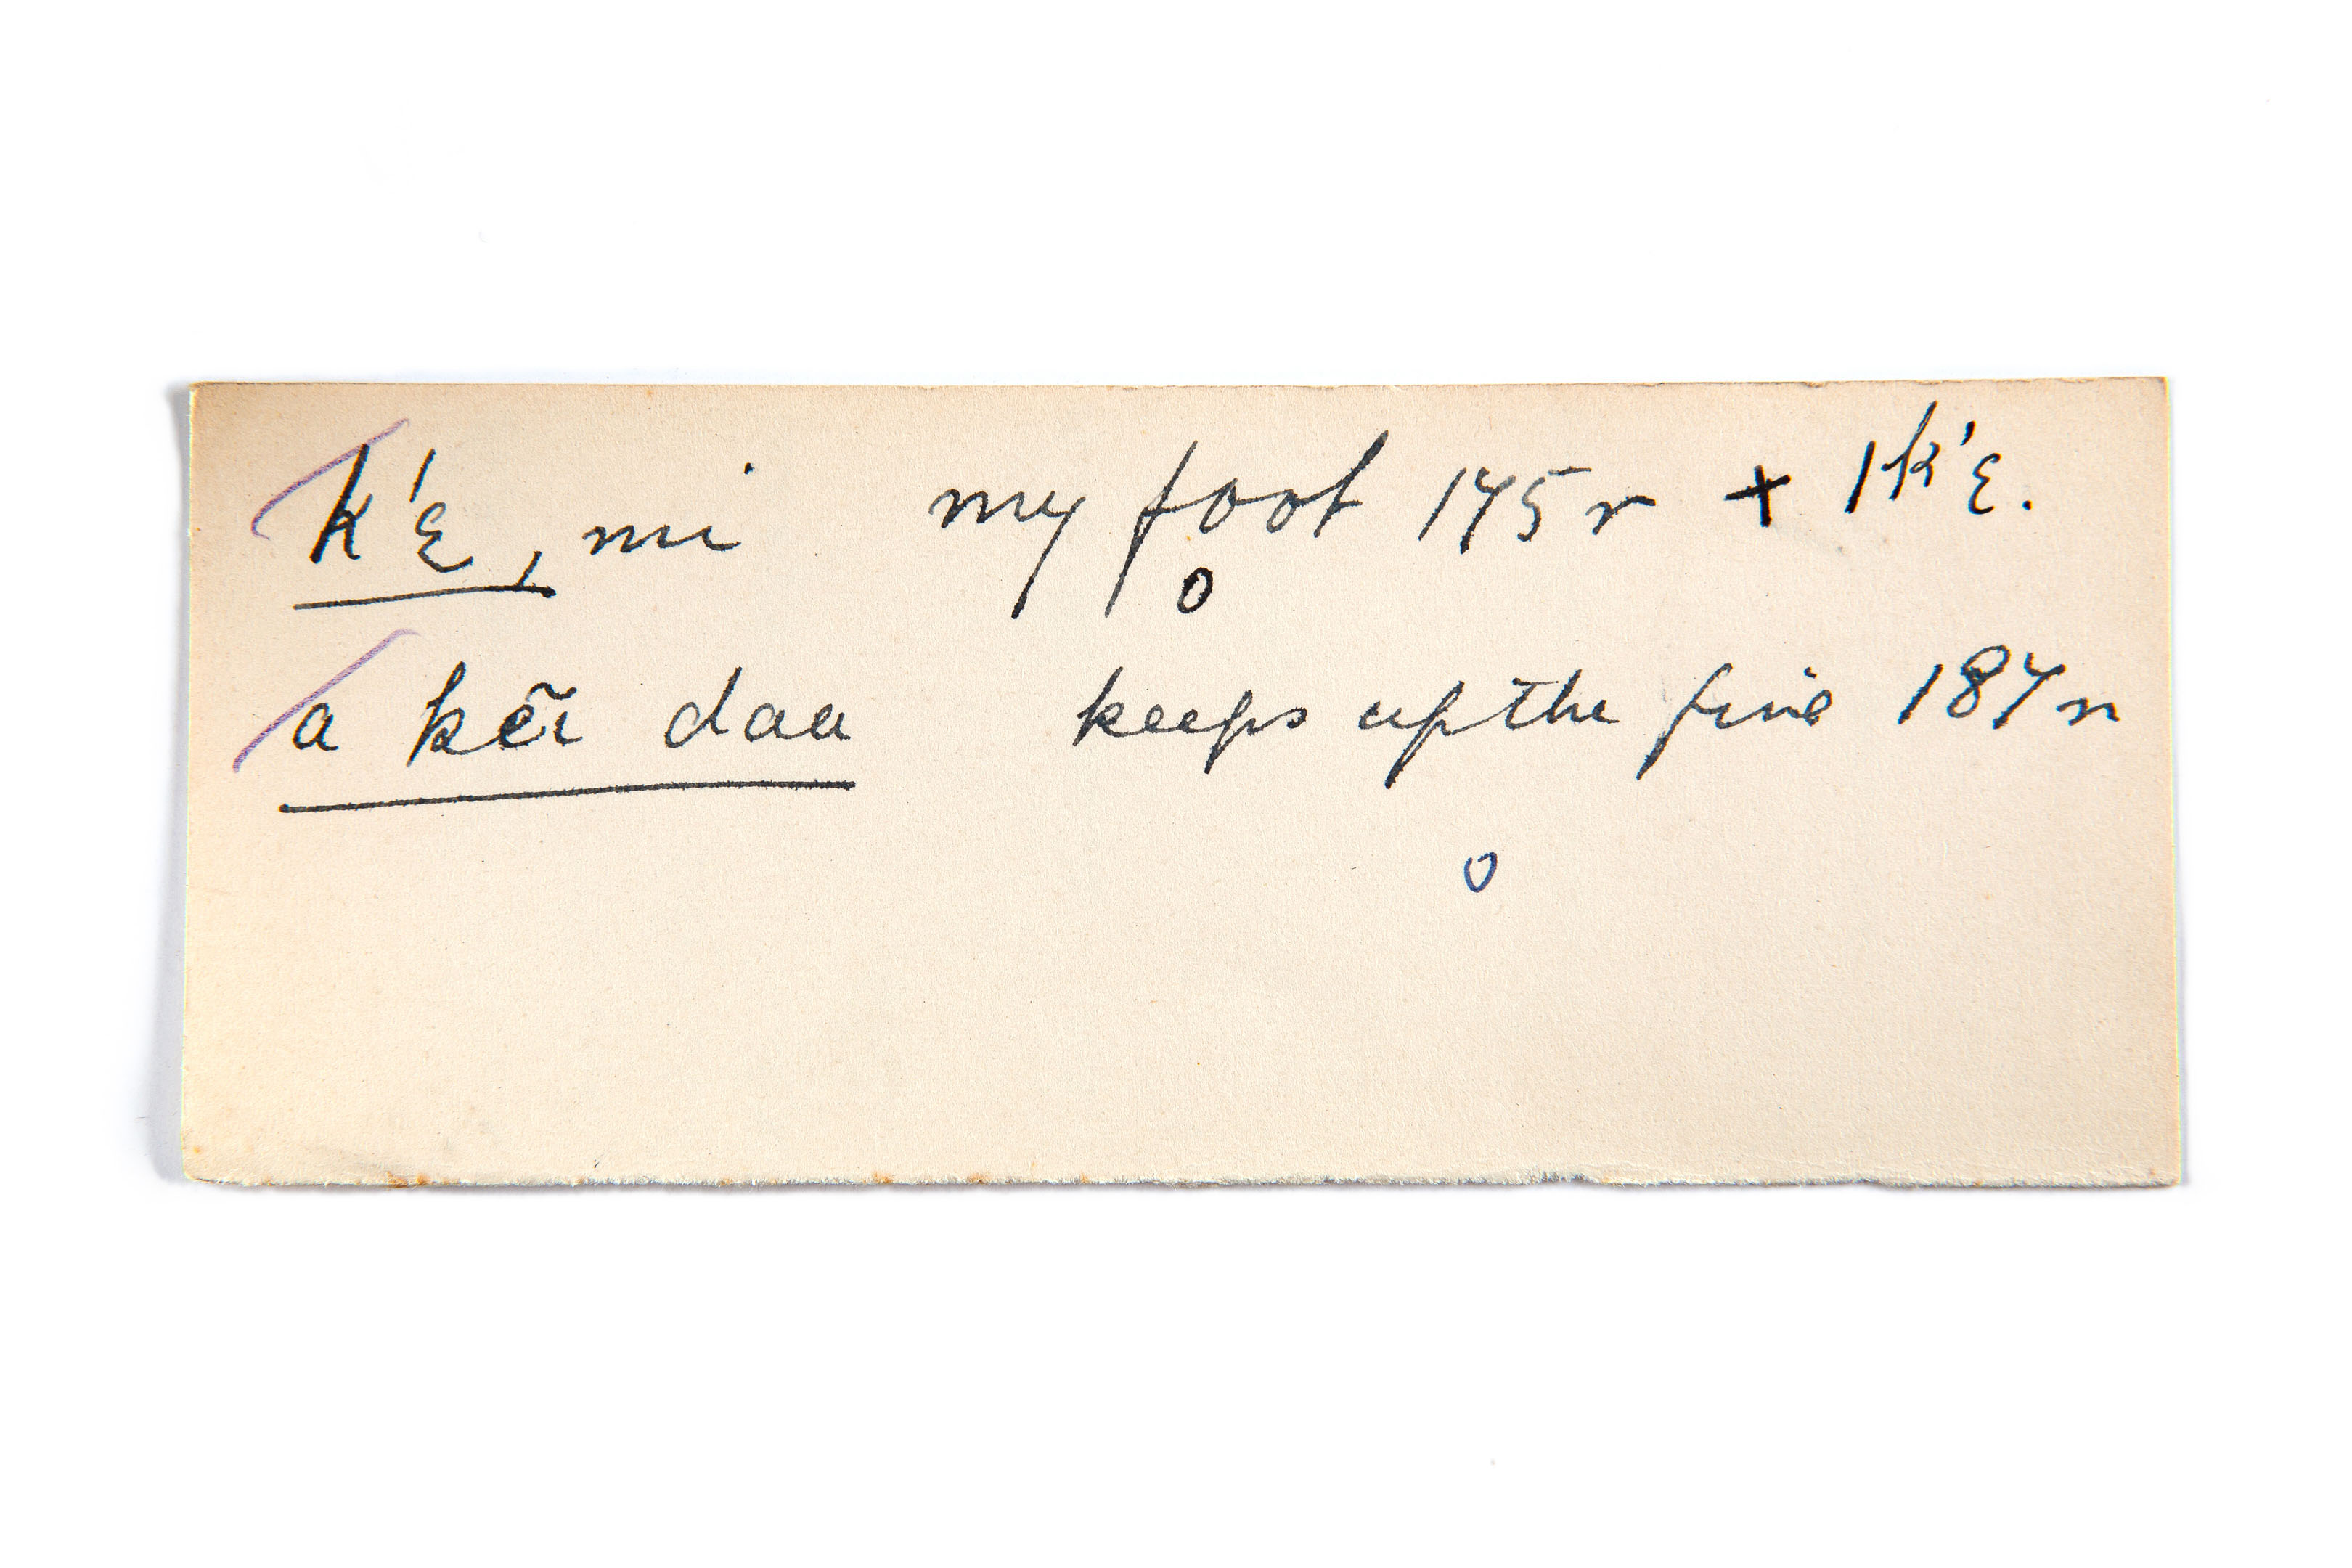 k'ɛ, mi my foot 175 r + 1k'ɛ.
o
a kẽı daa keeps up the fire 187 n
o